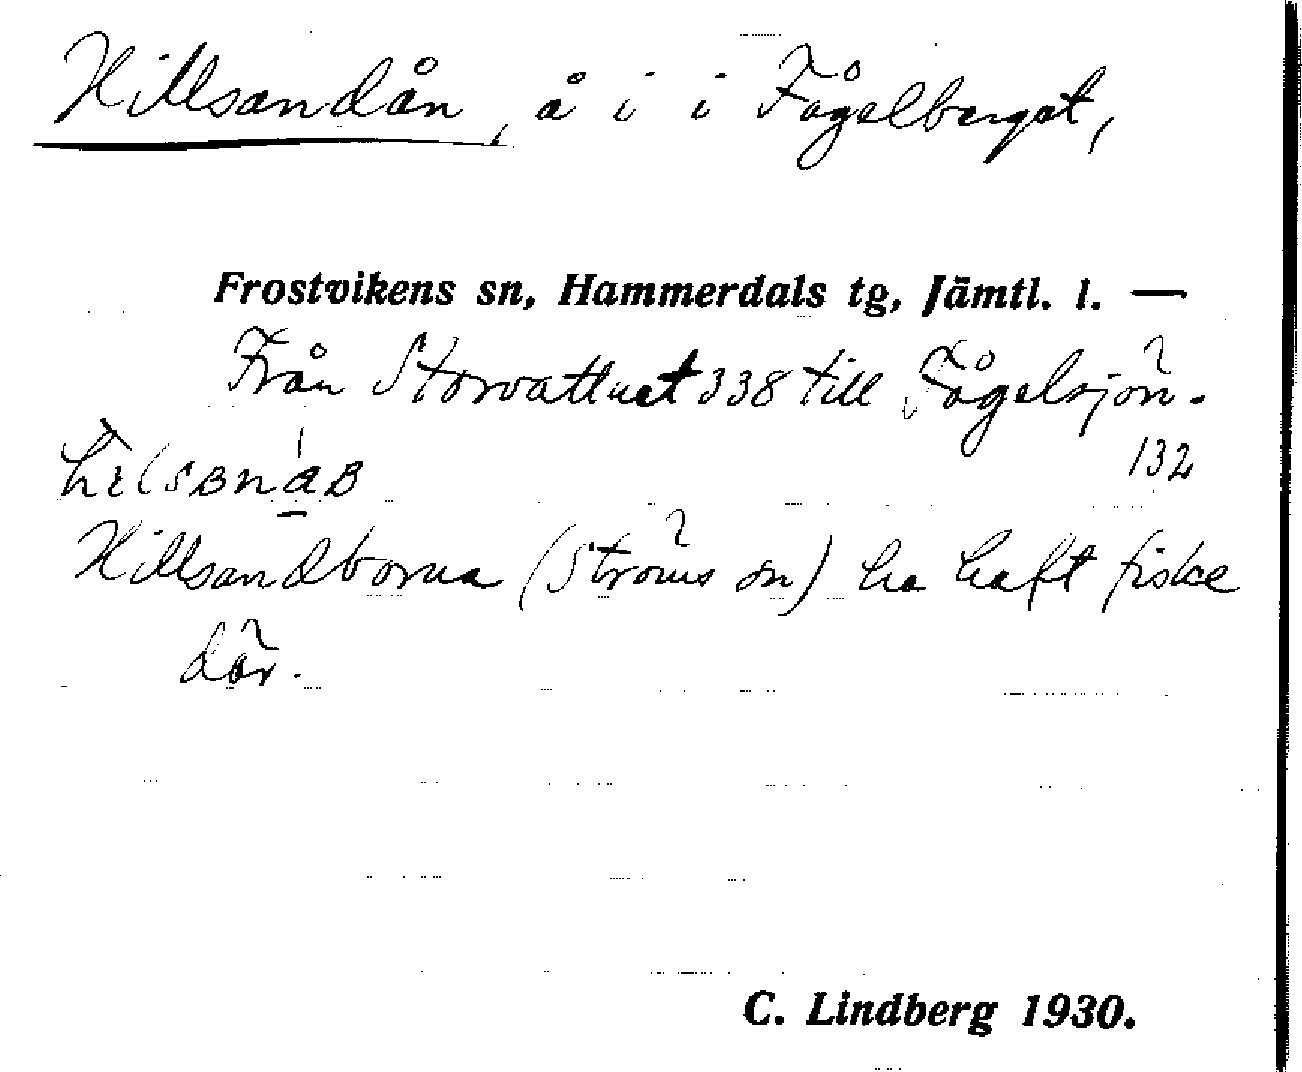 Hillsandån, å i i Fågelberget,
Frostvikens sn, Hammerdals tg, Jämtl. l. —
Från Storvattnet 338 till Fågelsjön.
132
Hillsandborna (Ströms sn) ha haft fiske
där.
C. Lindberg 1930.